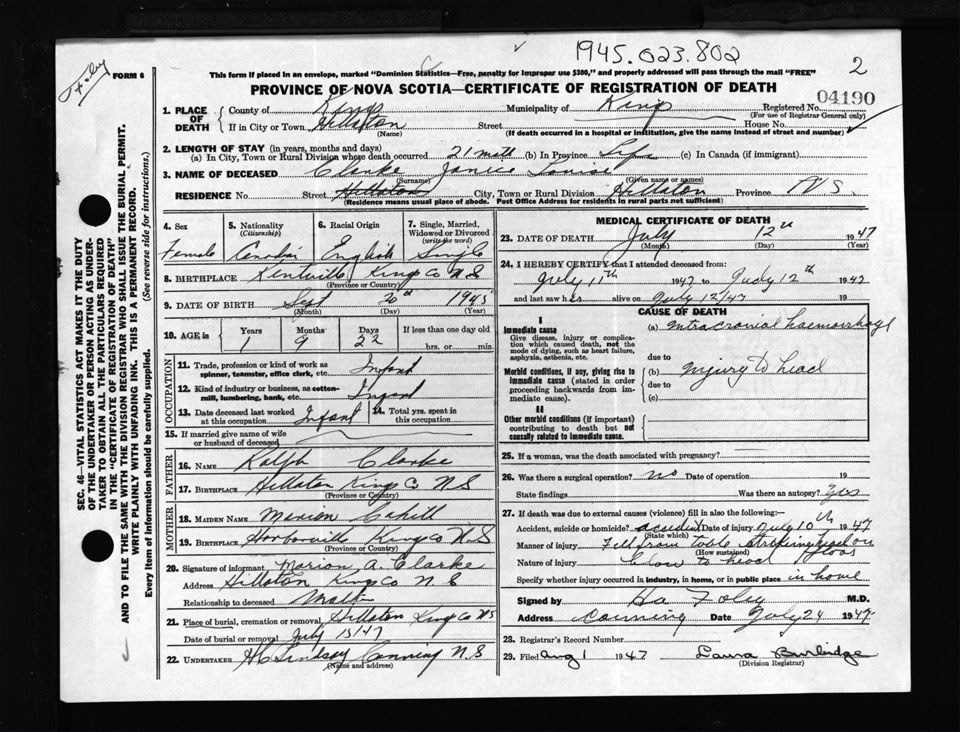 1945.023.802
Foley
FORM 6
2
This form if placed in an envelope, marked "Dominion Statistics—Free, penalty for improper use $300," and properly addressed will pass through the mail "FREE"
PROVINCE OF NOVA SCOTIA—CERTIFICATE OF REGISTRATION OF DEATH
04190
1. PLACE OF DEATH County of Kings Municipality of Kings Registered No.
(For use of Registrar General only)
If in City or Town Hillaton Street House No.
(Name) (If death occurred in a hospital or institution, give the name instead of street and number)
2. LENGTH OF STAY (in years, months and days)
(a) In City, Town or Rural Division where death occurred 21 mths (b) In Province Life (c) In Canada (if immigrant)
3. NAME OF DECEASED Clarke Janice Louise
(Surname) (Given name or names)
RESIDENCE No. Street Hillaton City, Town or Rural Division Hillaton Province N.S.
(Residence means usual place of abode. Post Office Address for residents in rural parts not sufficient)
SEC. 46—VITAL STATISTICS ACT MAKES IT THE DUTY
OF THE UNDERTAKER OR PERSON ACTING AS UNDER-
TAKER TO OBTAIN ALL THE PARTICULARS REQUIRED
IN THE "CERTIFICATE OF REGISTRATION OF DEATH"
AND TO FILE THE SAME WITH THE DIVISION REGISTRAR WHO SHALL ISSUE THE BURIAL PERMIT.
WRITE PLAINLY WITH UNFADING INK. THIS IS A PERMANENT RECORD.
Every item of information should be carefully supplied. (See reverse side for instructions.)
4. Sex 5. Nationality (Citizenship) 6. Racial Origin 7. Single, Married, Widowed or Divorced (write the word)
Female Canadian English Single
8. BIRTHPLACE Kentville Kings Co N.S
(Province or Country)
9. DATE OF BIRTH Sept 20th 1945
(Month) (Day) (Year)
10. AGE is Years Months Days If less than one day old
1 9 22 hrs. or min.
OCCUPATION
11. Trade, profession or kind of work as spinner, teamster, office clerk, etc. Infant
12. Kind of industry or business, as cotton-mill, lumbering, bank, etc. Infant
13. Date deceased last worked at this occupation Infant 14. Total yrs. spent in this occupation
15. If married give name of wife or husband of deceased
FATHER
16. NAME Ralph Clarke
17. BIRTHPLACE Hillaton Kings Co N S
(Province or Country)
MOTHER
18. MAIDEN NAME Marion Cahill
19. BIRTHPLACE Harborville Kings Co N.S
(Province or Country)
20. Signature of informant Marion A. Clarke
Address Hillaton Kings Co N S
Relationship to deceased Mother
21. Place of burial, cremation or removal Hillaton Kings Co NS
Date of burial or removal July 15/47
22. UNDERTAKER H C Lindsay Canning N.S
(Name and address)
MEDICAL CERTIFICATE OF DEATH
23. DATE OF DEATH July 12th 1947
(Month) (Day) (Year)
24. I HEREBY CERTIFY that I attended deceased from:
July 11th 1947 to July 12th 1947
and last saw her alive on July 12/47 19
CAUSE OF DEATH
I
Immediate cause
Give disease, injury or complication which caused death, not the mode of dying, such as heart failure, asphyxia, asthenia, etc.
(a) intracranial haemorrhage
due to
Morbid conditions, if any, giving rise to immediate cause (stated in order proceeding backwards from immediate cause).
(b) injury to head
due to
(c)
II
Other morbid conditions (if important) contributing to death but not causally related to immediate cause.
25. If a woman, was the death associated with pregnancy?
26. Was there a surgical operation? no Date of operation 19
State findings Was there an autopsy? Yes
27. If death was due to external causes (violence) fill in also the following:
Accident, suicide or homicide? accident Date of injury July 10th 1947
(State which)
Manner of injury Fell from table striking head on floor
(How sustained)
Nature of injury blow to head
Specify whether injury occurred in industry, in home, or in public place in home
Signed by H a Foley M.D.
Address Canning Date July 24 1947
28. Registrar's Record Number
29. Filed Aug 1 1947 Laura Burbidge
(Division Registrar)